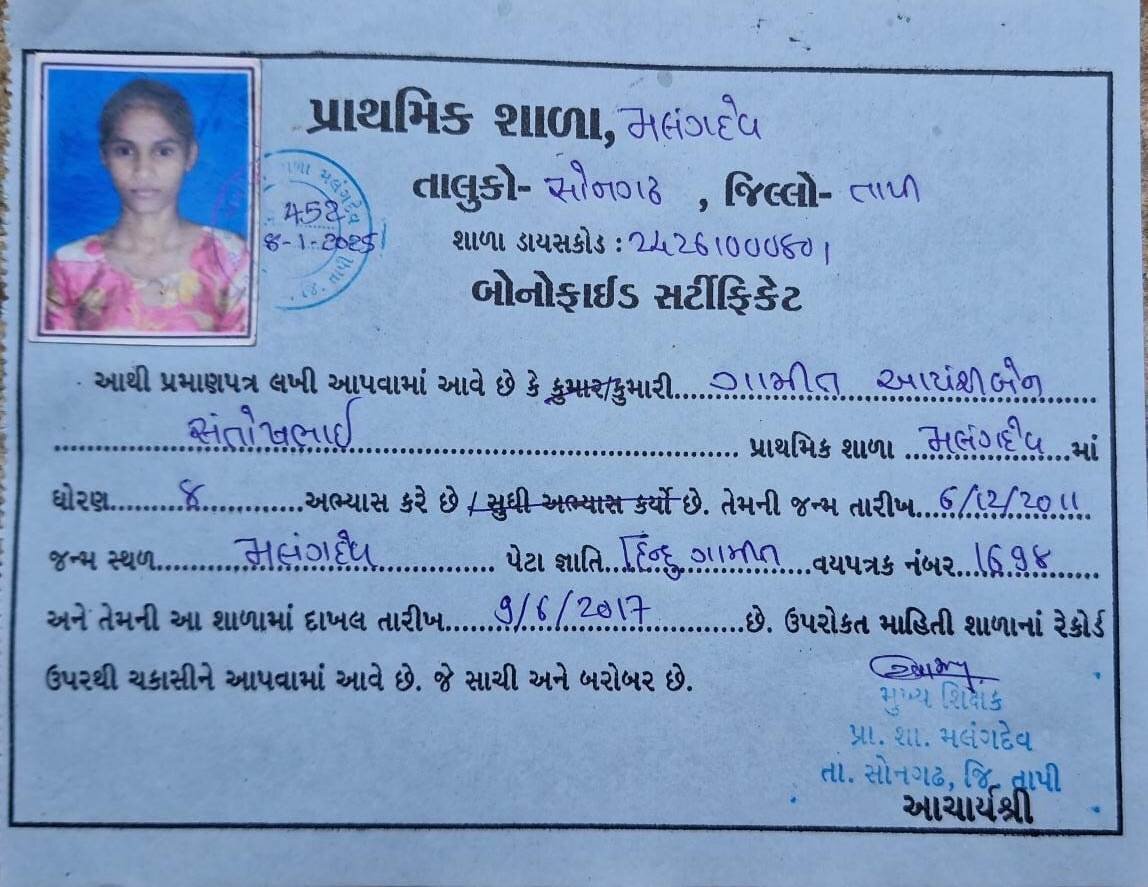 પ્રાથમિક શાળા, મલંગદેવ
તાલુકો- સોનગઢ , જિલ્લો- તાપી
શાળા ડાયસકોડ : 24261000801
બોનોફાઈડ સર્ટીફિકેટ
શાળા મલંગદેવ
452
8-1-2025
જિ. તાપી
આથી પ્રમાણપત્ર લખી આપવામાં આવે છે કે કુમાર/કુમારી ગામીત આયંશીબેન
સંતોષભાઈ પ્રાથમિક શાળા મલંગદેવ માં
ધોરણ ૪ અભ્યાસ કરે છે / સુધી અભ્યાસ કર્યો છે. તેમની જન્મ તારીખ 6/12/2011
જન્મ સ્થળ મલંગદેવ પેટા જ્ઞાતિ હિન્દુ ગામીત વયપત્રક નંબર 169૪
અને તેમની આ શાળામાં દાખલ તારીખ 9/6/2017 છે. ઉપરોકત માહિતી શાળાનાં રેકોર્ડ
ઉપરથી ચકાસીને આપવામાં આવે છે. જે સાચી અને બરોબર છે.
મુખ્ય શિક્ષક
પ્રા. શા. મલંગદેવ
તા. સોનગઢ, જિ. તાપી
આચાર્યશ્રી